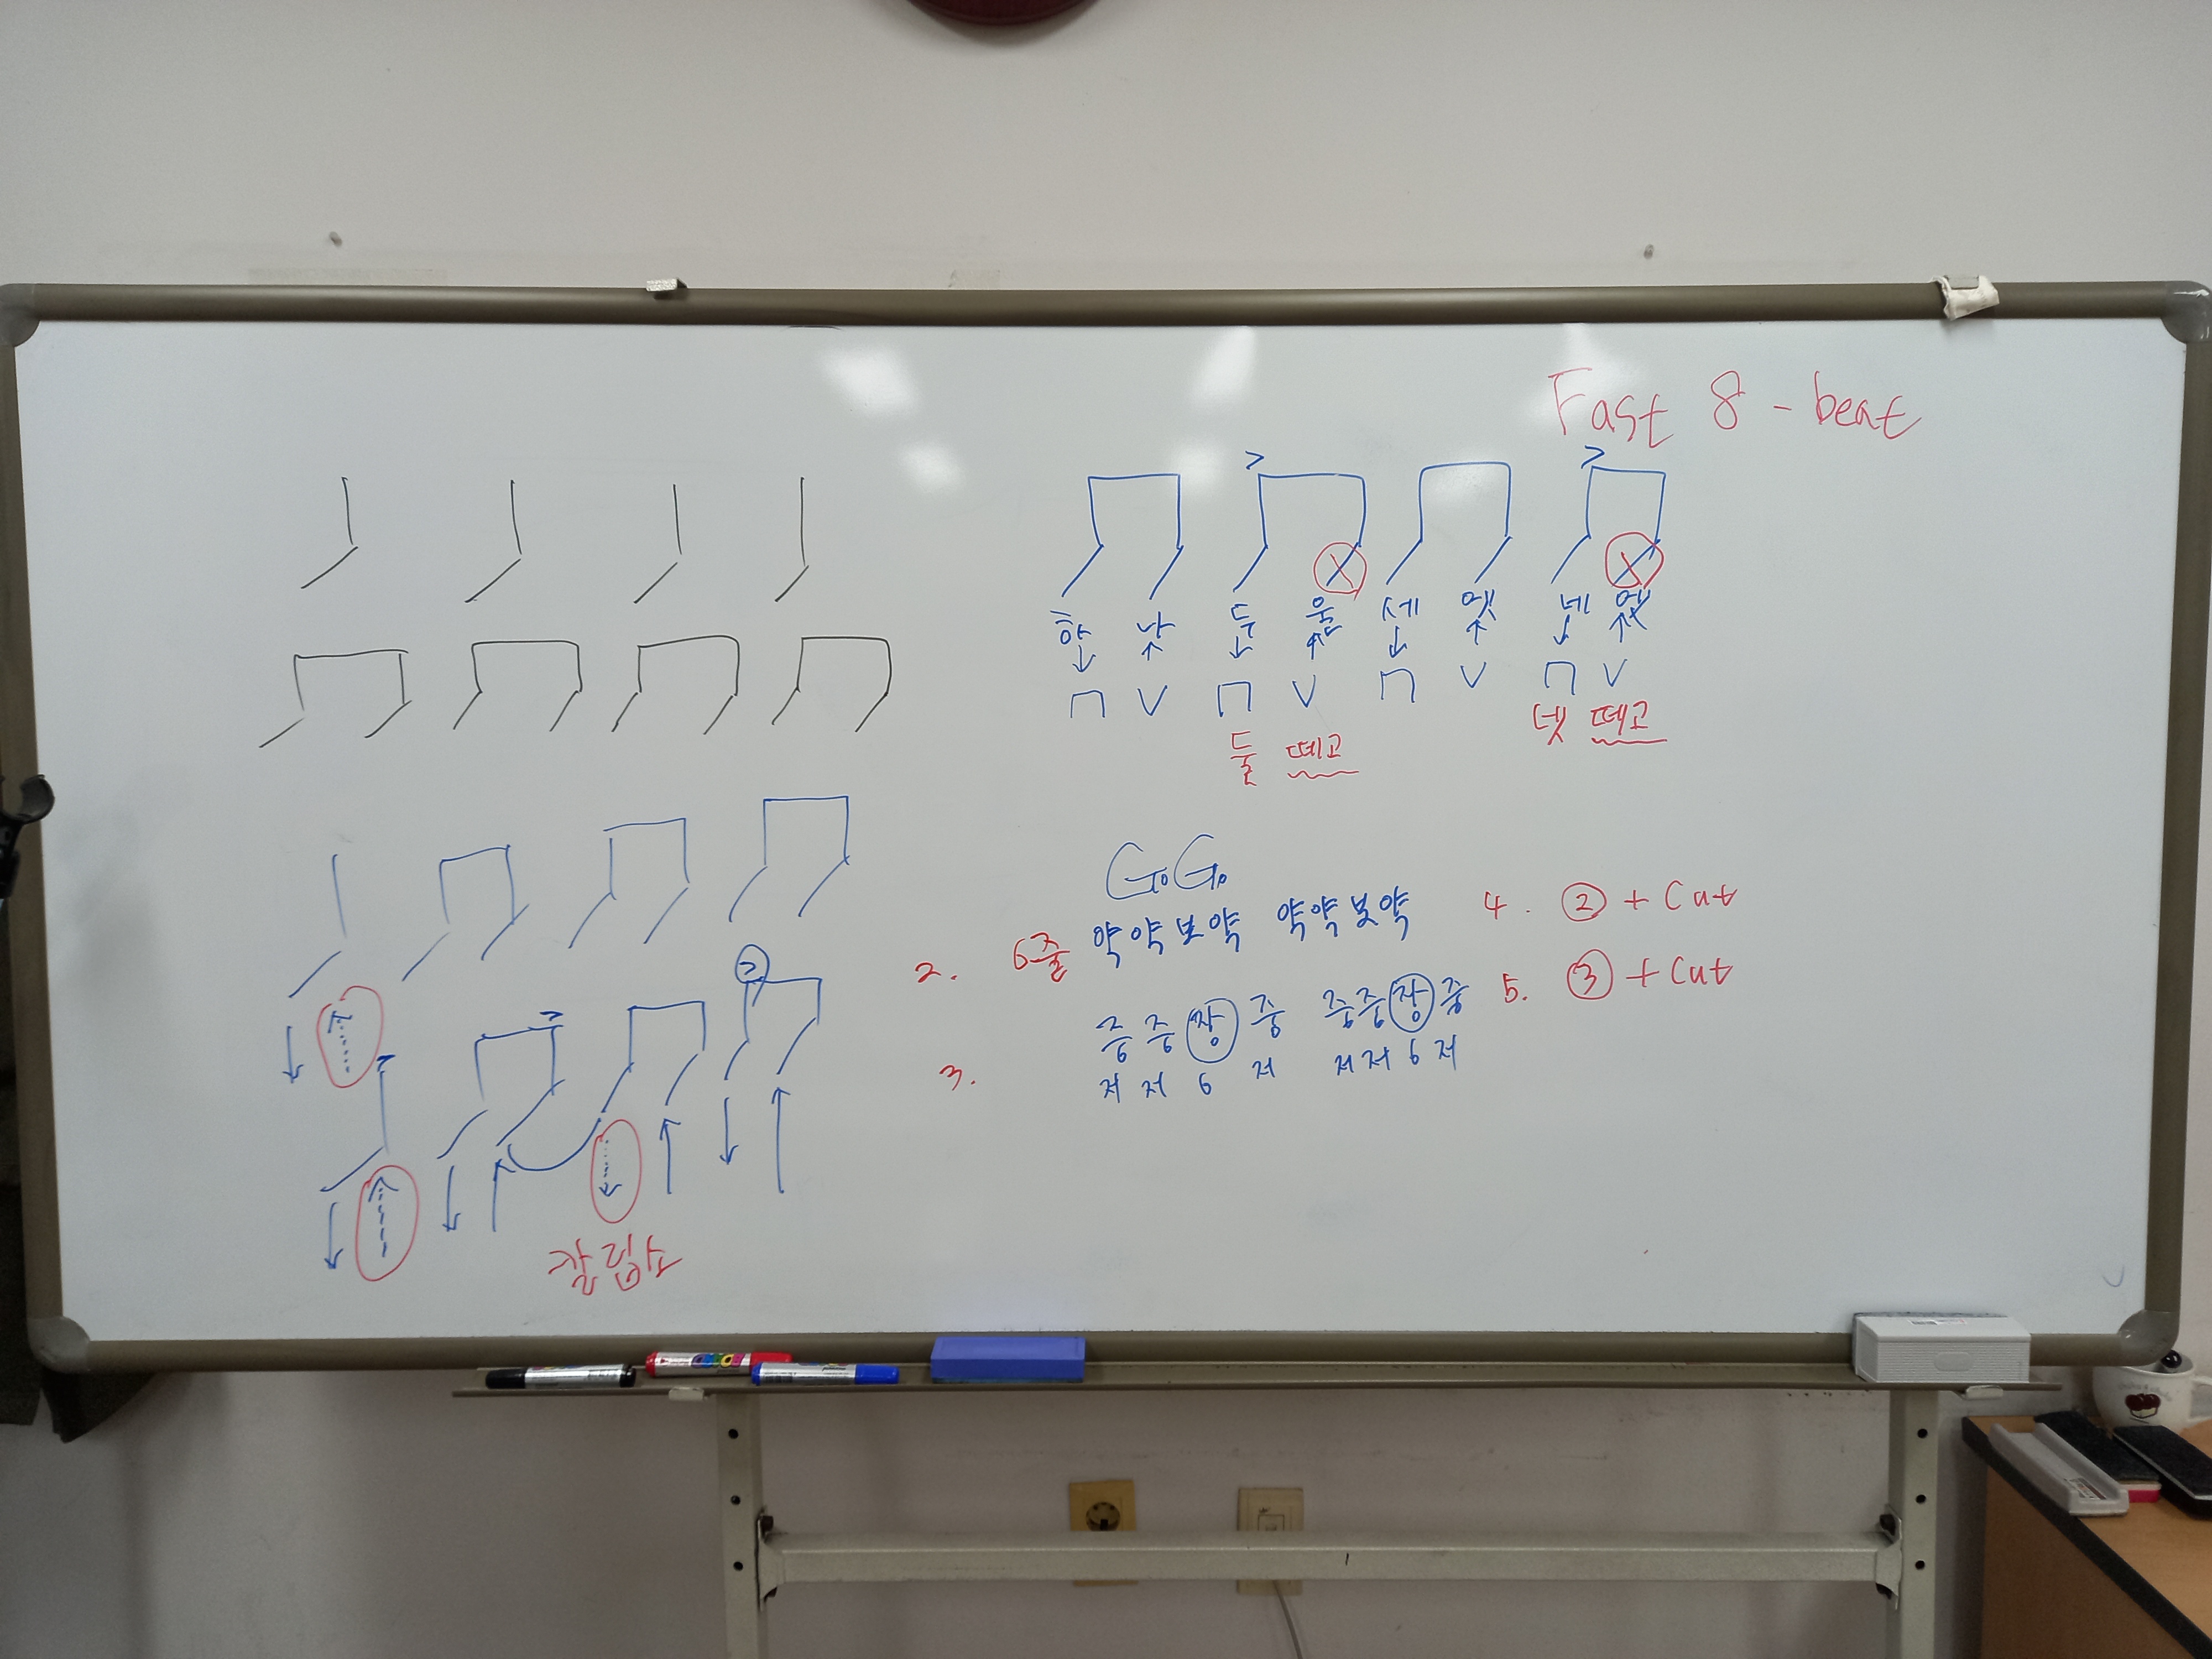 Fast 8 - beat
하 나 두 울 세 엣 네 엣
둘 떼고 넷 떼고
GoGo
2. 6줄 약약보약 약약보약
4. ② + Cut
중 중 장 중 중중장중
5. ③ + Cut
3. 저 저 6 저 저저6저